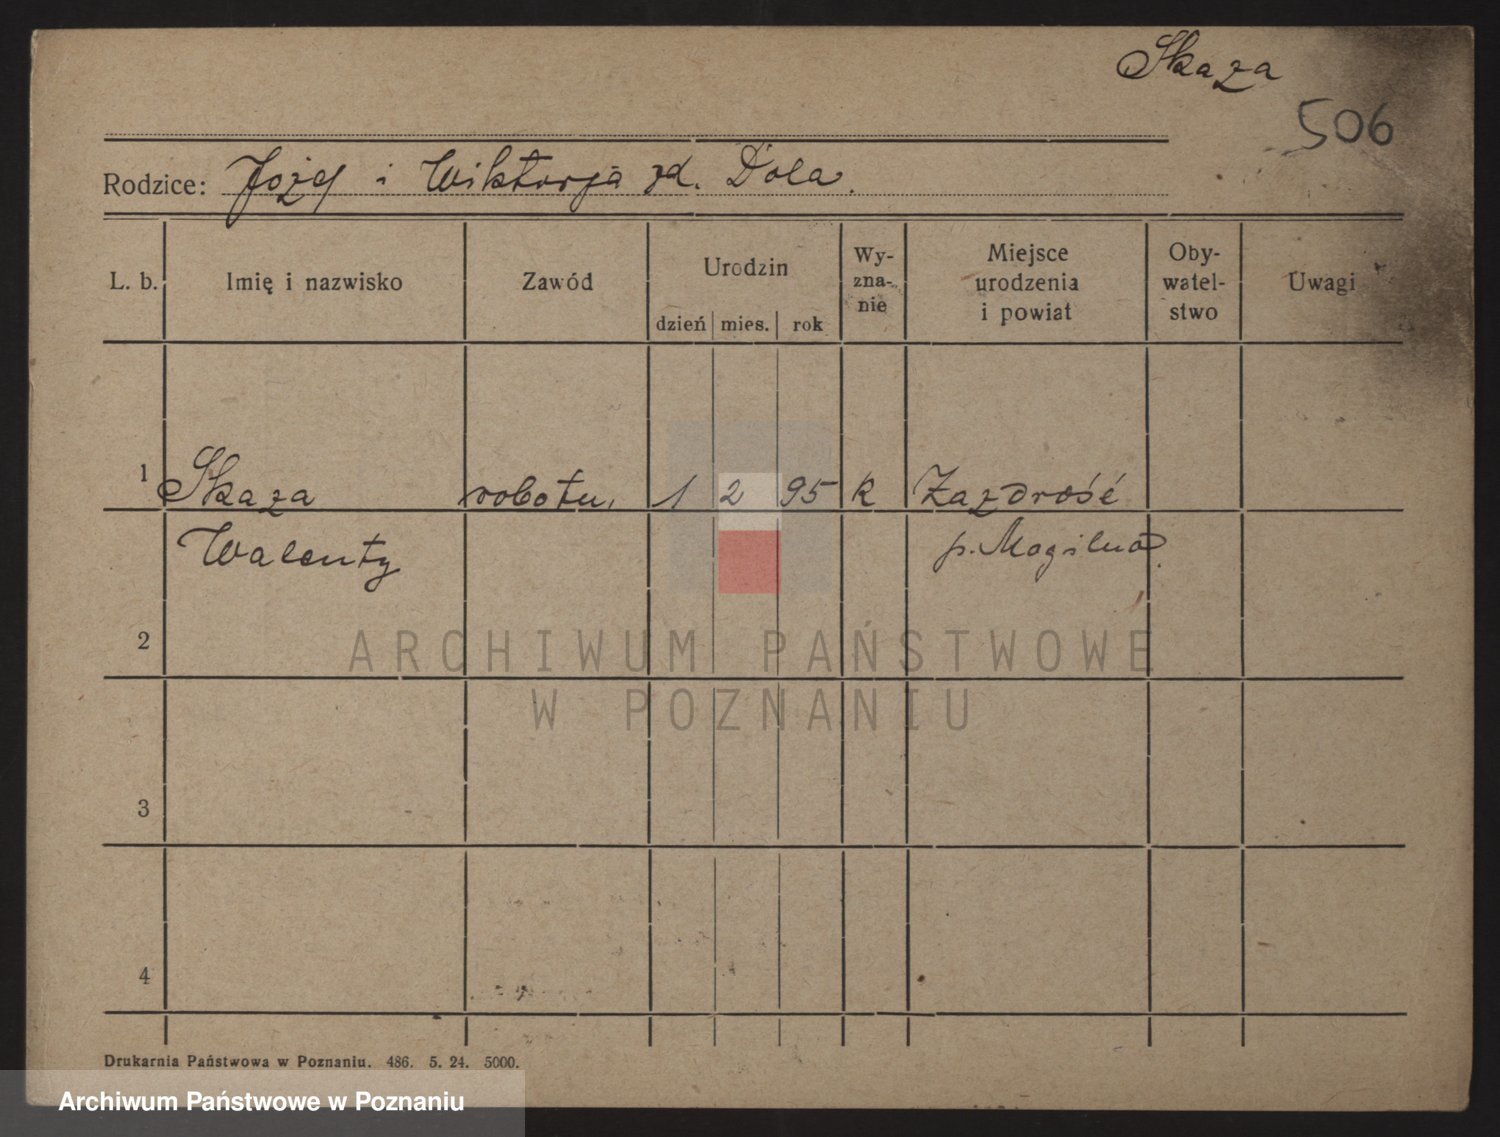 Skaza
506
Rodzice: Józef i Wiktorja zd. Dola.
L. b. Imię i nazwisko Zawód Urodzin dzień mies. rok Wy-zna-nie Miejsce urodzenia i powiat Oby-watel-stwo Uwagi
1 Skaza robotn. 1 2 95 k Zazdrość
Walenty p. Mogilno.
2
ARCHIWUM PAŃSTWOWE
W POZNANIU
3
4
Drukarnia Państwowa w Poznaniu. 486. 5. 24. 5000.
Archiwum Państwowe w Poznaniu